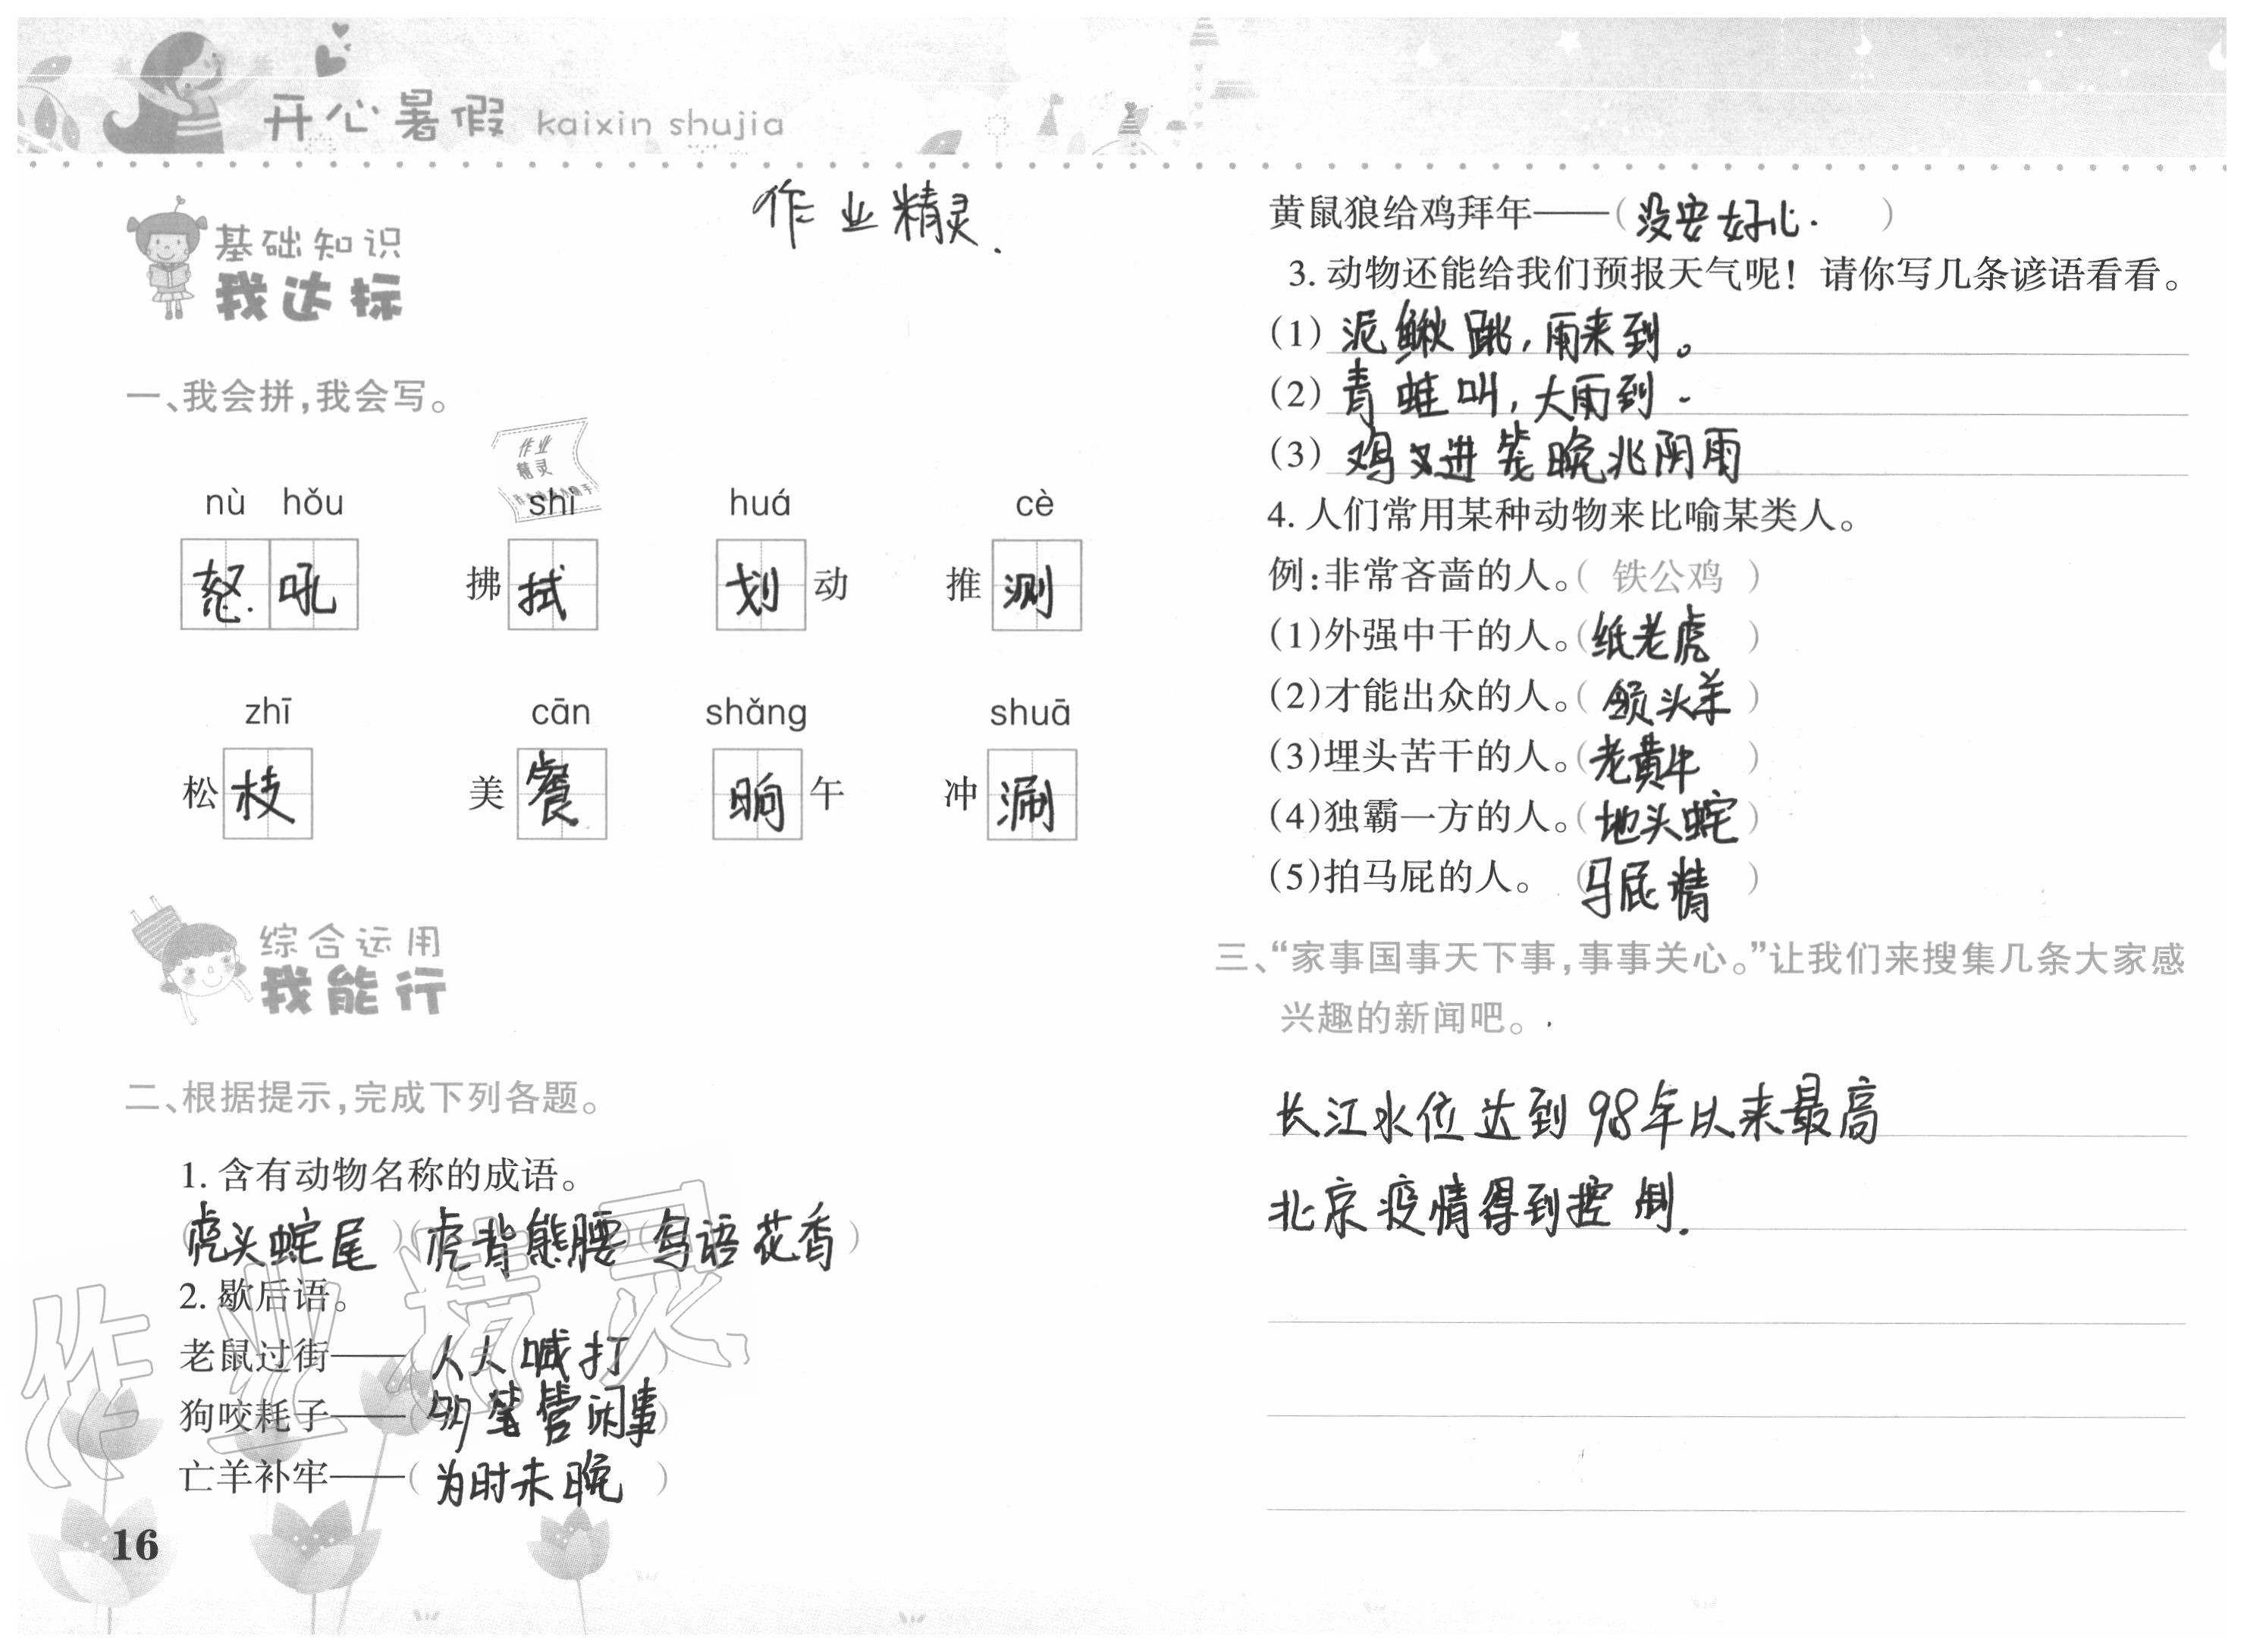 开心暑假 kaixin shujia
作业精灵.
基础知识
我达标
一、我会拼,我会写。
作业
精灵
nù hǒu shì huá cè
怒吼 拂拭 划动 推测
zhī cān shǎng shuā
松枝 美餐 晌午 冲涮
综合运用
我能行
二、根据提示,完成下列各题。
1. 含有动物名称的成语。
(虎头蛇尾)(虎背熊腰)(鸟语花香)
2. 歇后语。
老鼠过街——(人人喊打)
狗咬耗子——(多管闲事)
亡羊补牢——(为时未晚)
作业精灵
16
黄鼠狼给鸡拜年——(没安好心.)
3. 动物还能给我们预报天气呢!请你写几条谚语看看。
(1) 泥鳅跳,雨来到。
(2) 青蛙叫,大雨到.
(3) 鸡又进笼晚兆阴雨
4. 人们常用某种动物来比喻某类人。
例:非常吝啬的人。(铁公鸡)
(1)外强中干的人。(纸老虎)
(2)才能出众的人。(领头羊)
(3)埋头苦干的人。(老黄牛)
(4)独霸一方的人。(地头蛇)
(5)拍马屁的人。(马屁精)
三、“家事国事天下事,事事关心。”让我们来搜集几条大家感
兴趣的新闻吧。
长江水位达到98年以来最高
北京疫情得到控制.